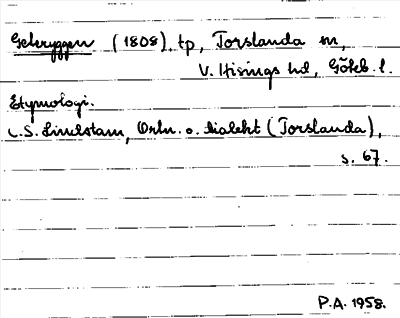 Gekryggen (1808) tp, Torslanda sn,
V. Hisings hd, Göteb. l.
Etymologi.
C.S. Lindstam, Ortn. o. dialekt (Torslanda),
s. 67.
P.A. 1958.